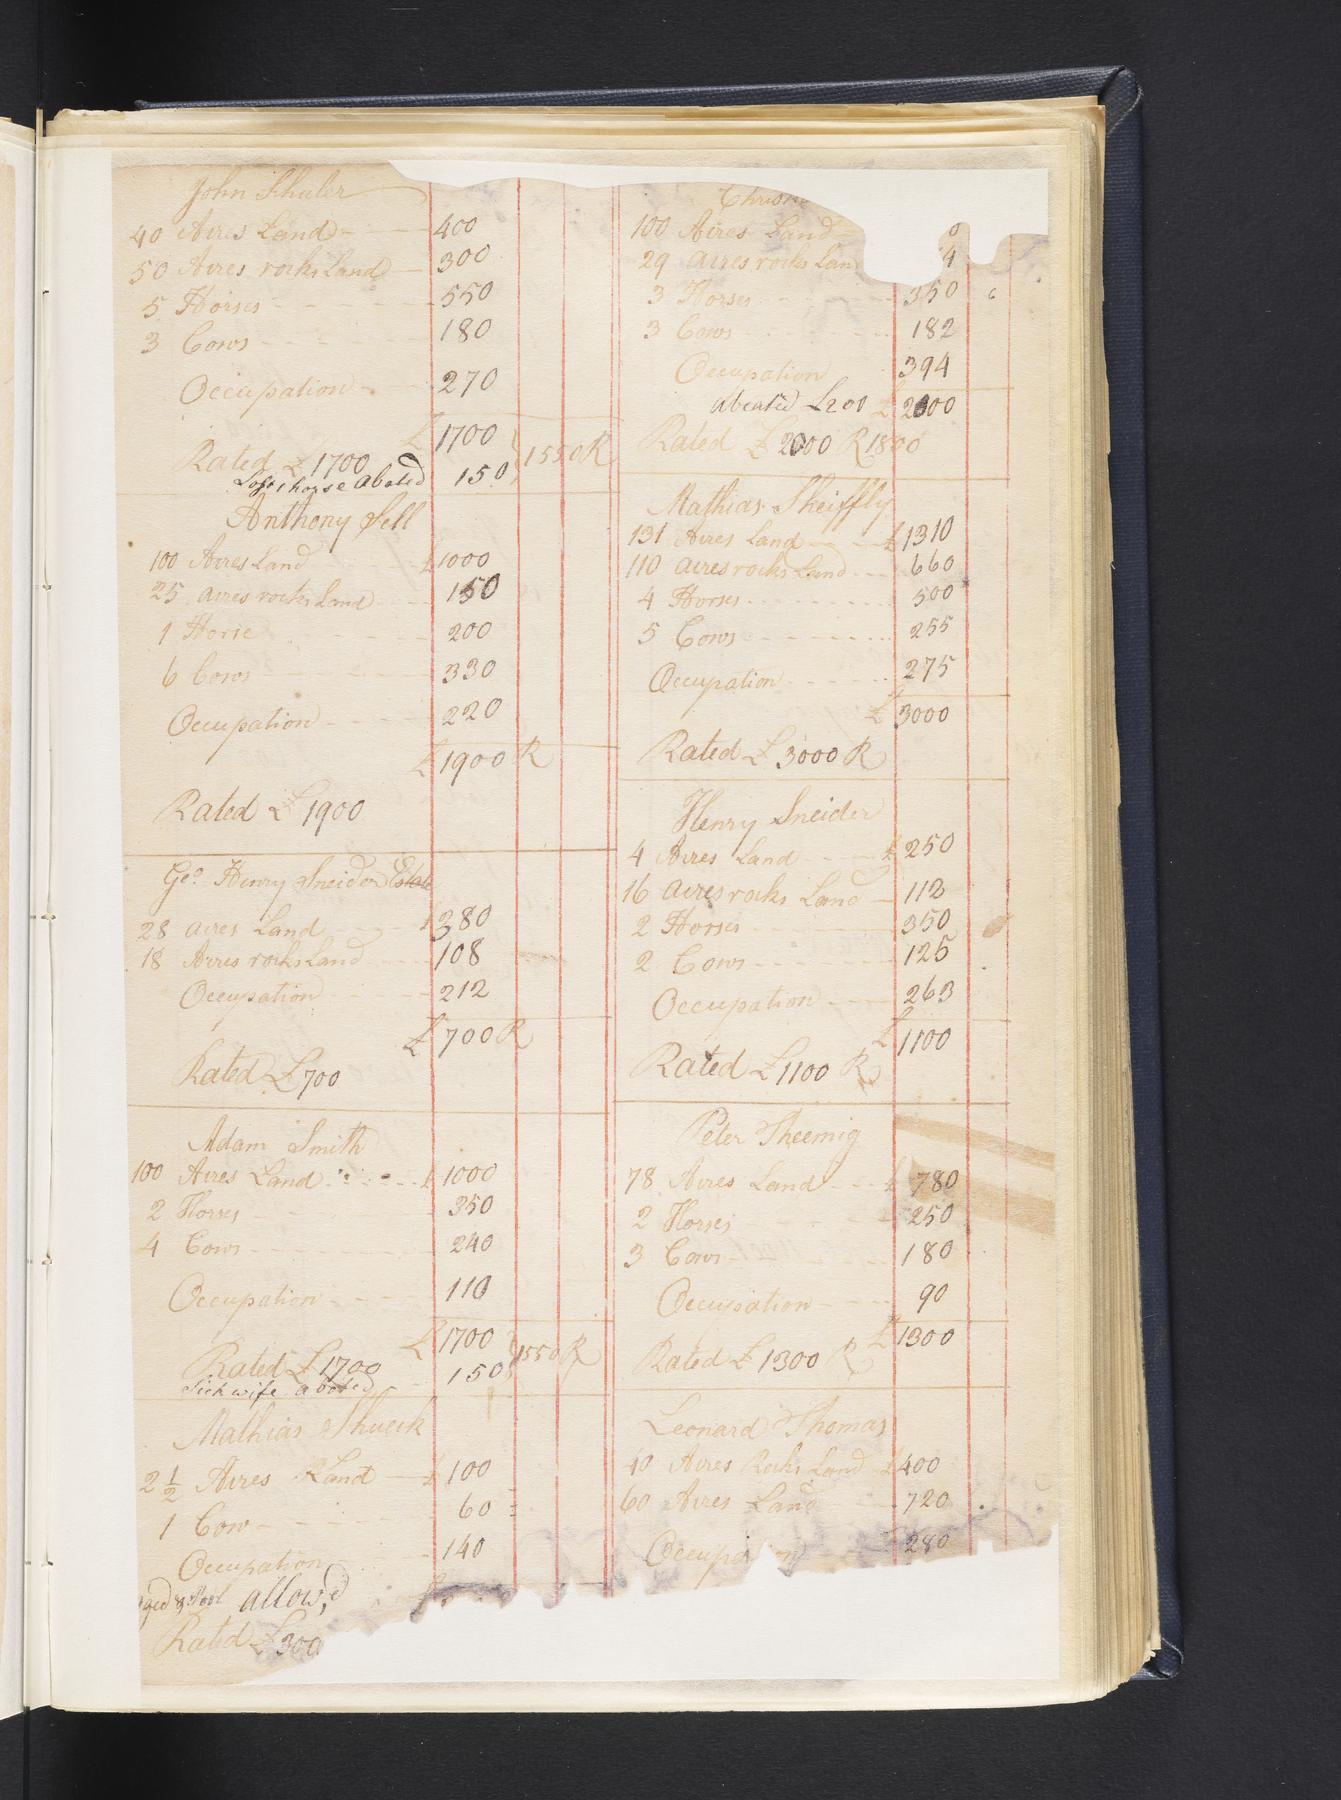 John Shuler
40 Acres Land 400
50 Acres rocks Land 300
5 Horses 550
3 Cows 180
Occupation 270
£ 1700
Rated £ 1700 1550 R
Lost 1 horse abated 150
Anthony Sell
100 Acres Land £ 1000
25 acres rocks Land 150
1 Horse 200
6 Cows 330
Occupation 220
£ 1900 R
Rated £ 1900
Geo Henry Sneider Estate
28 acres Land £ 380
18 Acres rocks Land 108
Occupation 212
£ 700 R
Rated £ 700
Adam Smith
100 Acres Land £ 1000
2 Horses 350
4 Cows 240
Occupation 110
£ 1700
Rated £ 1700 1550 R
Sick wife abated 150
Mathias Shuck
2 1/2 Acres Land £ 100
1 Cow 60
Occupation 140
allow,d £
Rated £ 300
100 Acres Land 0
29 acres rocks Lan 4
3 Horses 350
3 Cows 182
Occupation 394
abeated £200 £ 2000
Rated £ 2000 R 1800
Mathias Sheiffly
131 Acres Land £ 1310
110 acres rocks Land 660
4 Horses 500
5 Cows 255
Occupation 275
£ 3000
Rated £ 3000 R
Henry Sneider
4 Acres Land £ 250
16 acres rocks Land 112
2 Horses 350
2 Cows 125
Occupation 263
£ 1100
Rated £ 1100 R
Peter Theemig
78 Acres Land £ 780
2 Horses 250
3 Cows 180
Occupation 90
£ 1300
Rated £ 1300 R
Leonard Thomas
40 Acres Rocks Land £ 400
60 Acres Land 720
Occupation 280